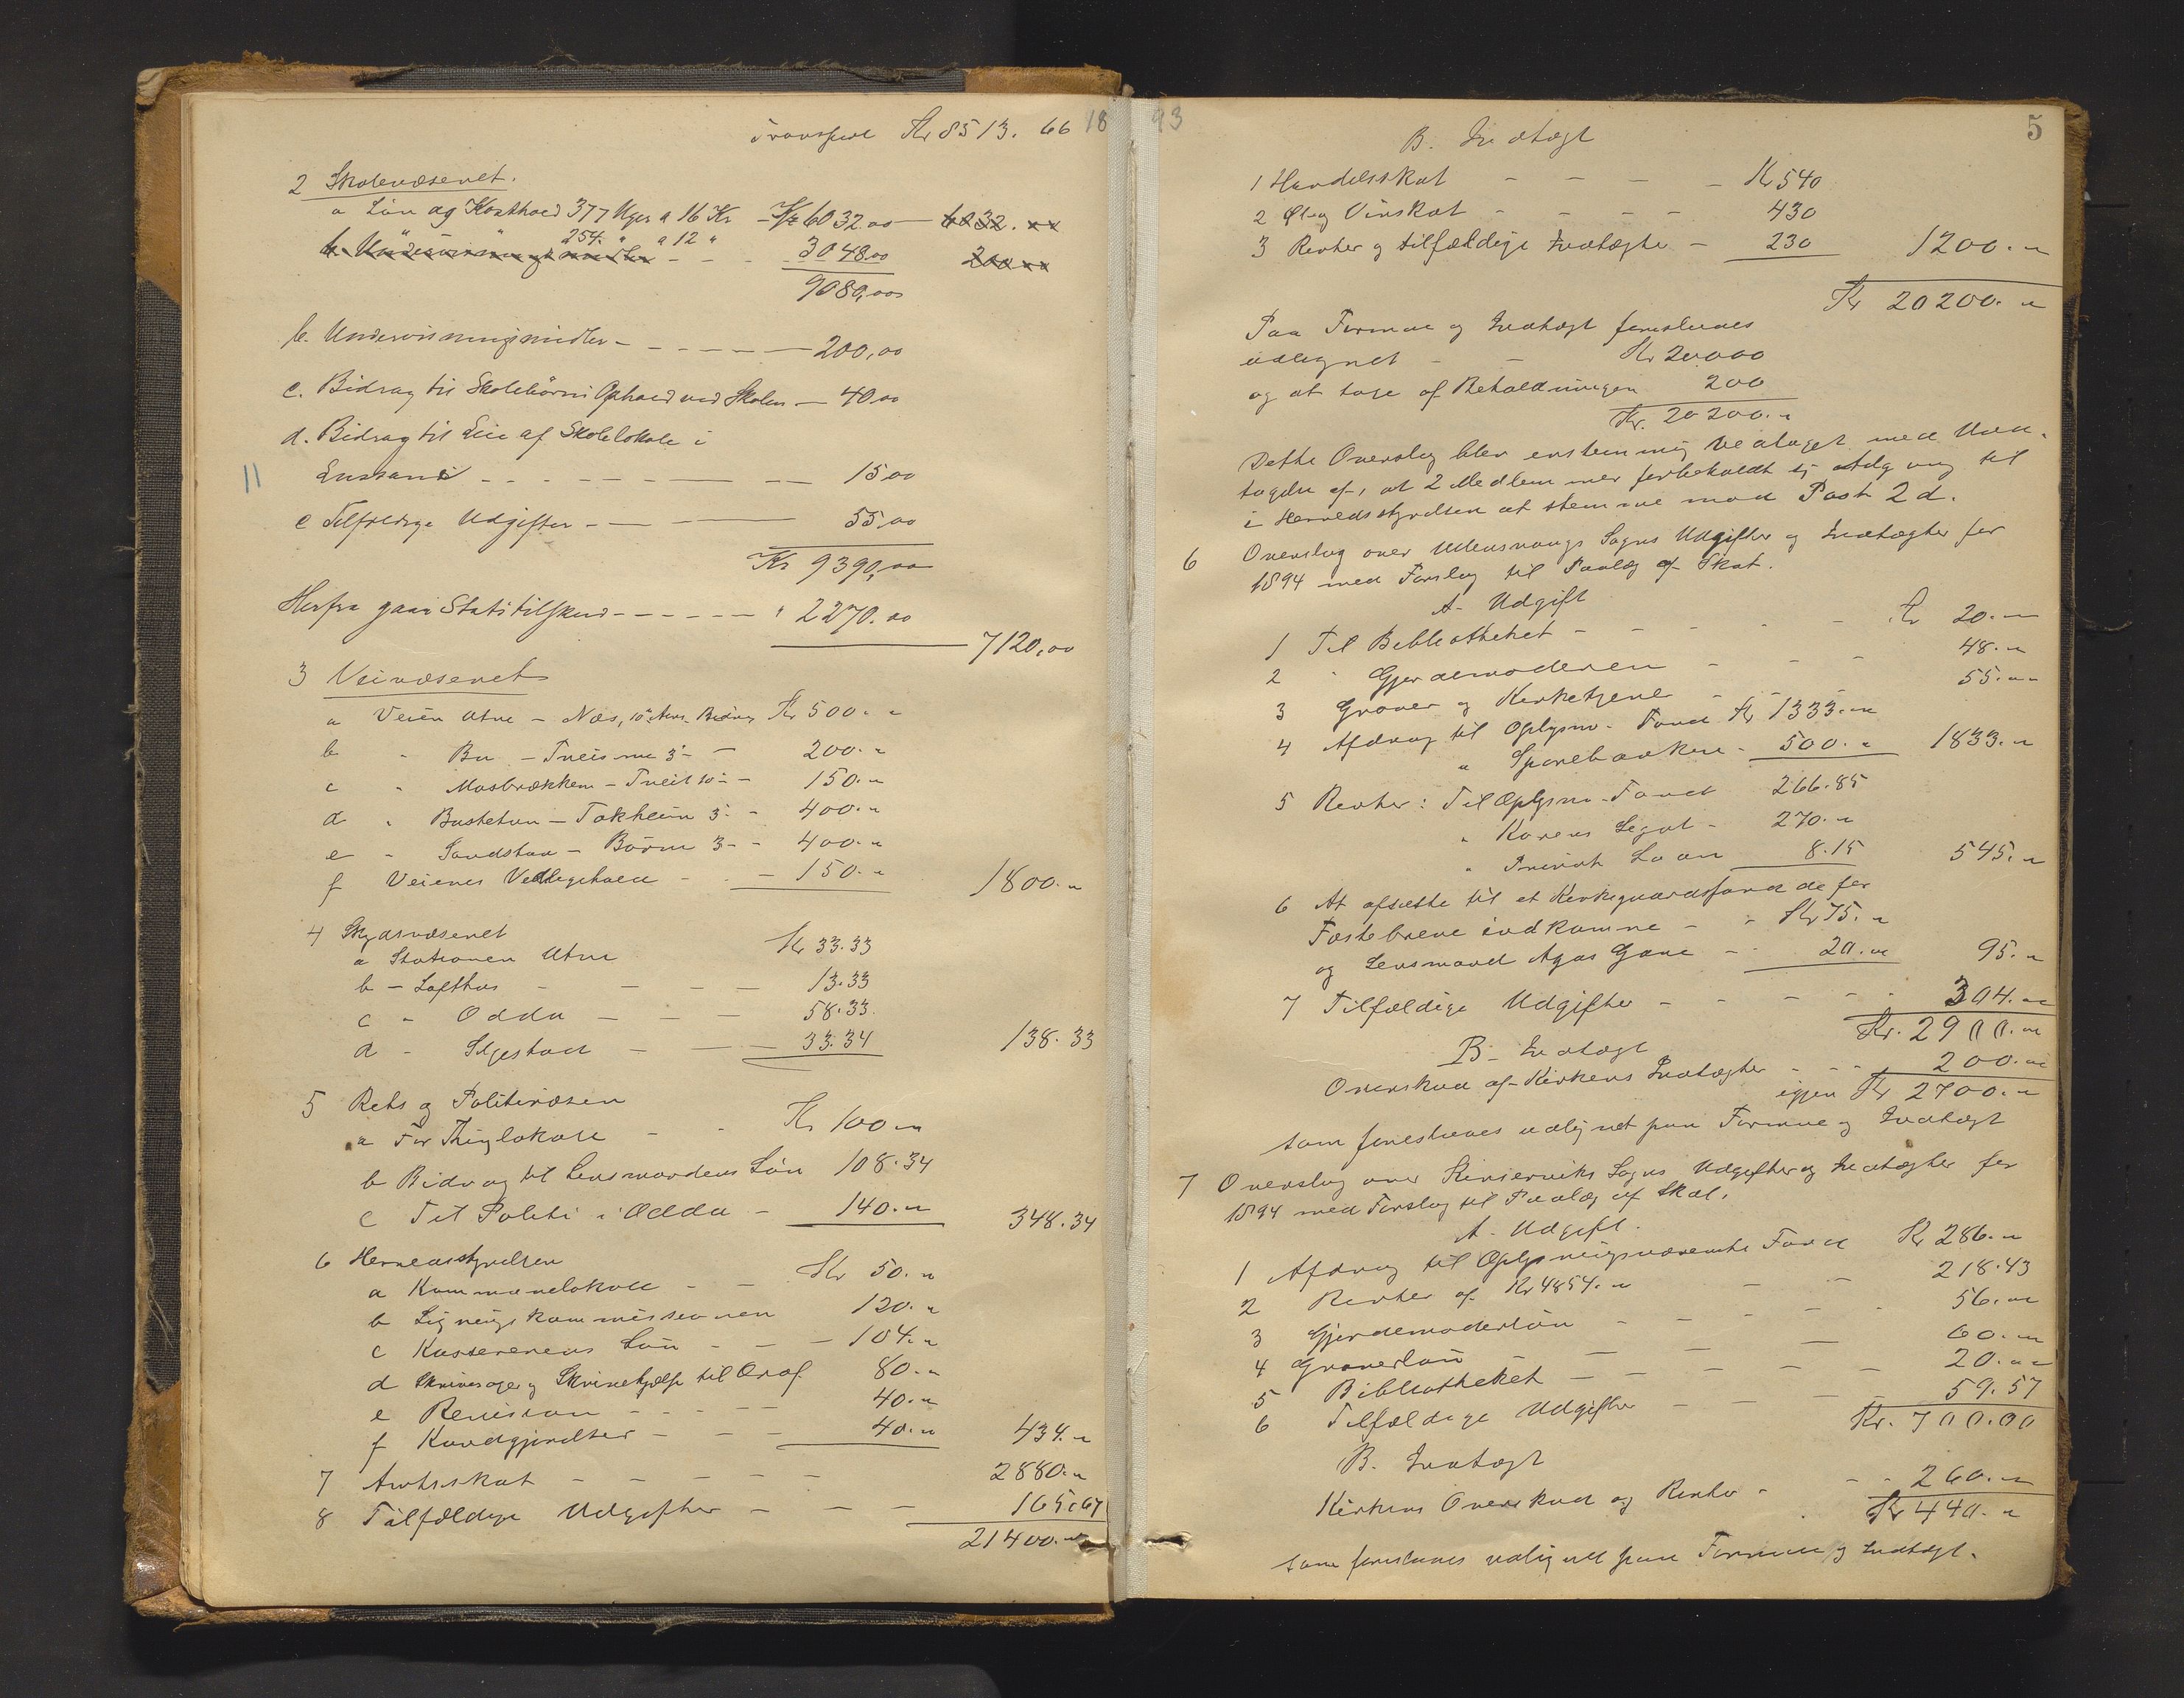 Transport Kr 8513. 66
18
2 Skolevæsenet.
a Løn og Kosthold 377 Uger a 16 Kr - Kr 6032.00 — 6032. xx
" " 254 " a 12 " 3048.00
b. Undervisningsmidler - - - 200 xx
9080,00
b. Undervisningsmidler - - - - - 200,00
c. Bidrag til Skolebørns Ophold ved Skolen — 40,00
d. Bidrag til Leie af Skolelokale i
11
- - - - - 15,00
e Tilfældige Udgifter - - - 55,00
Kr 9390,00
Herfra gaar Statstilskud - - - - - " 2270.00
7120,00
3 Veivæsenet
a Veien Utne - Næs, 10de Aars Bidrag Kr 500. "
b " Bu - 3- - 200. "
c " - Tveit 10- - 150. "
d " Bustetun - Tokheim 3- - 400. "
e " - Børve 3- - 400. "
f Veienes Vedligehold - - 150. " 1800. "
4 Skydsvæsenet
a Stationen Utne Kr 33.33
b - Lofthus - - - - 13.33
c " Odda - - - 58.33
d - Seljestad - - - 33.34 138.33
5 Rets og Politivæsen
a For Thinglokale - - Kr 100 "
b Bidrag til Lensmandens Løn 108.34
c Til Politi i Odda - 140. " 348.34
6 Herredsstyrelsen
a Kommunelokale - - Kr 50. "
b Ligningskommissionen 120. "
c Kassererens Løn - - - 104. "
d Skrivesager og Skrivehjælp til Ordf. 80. "
e Revision - - - - - 40. "
f Kundgjørelser - - - 40. " 434. "
7 Amtsskat - - - - - 2880. "
8 Tilfældige Udgifter - - - 165.67
21400. "
93
5
B. Indtægt
1 Handelsskat - - - - Kr 540
2 Øl og Vinskat - - - - 430
3 Renter og tilfældige Indtægter - 230 1200. "
Kr 20200. "
Paa Formue og Indtægt foreslaaes
udlignet - - Kr 20,000
og at tage af Beholdningen 200
Kr. 20200. "
Dette Overslag blev enstemmig vedtaget med Und-
tagelse af, at 2 Medlemmer forbeholdt sig Adgang til
i Herredsstyrelsen at stemme mod Post 2 d.
6 Overslag over Ullensvangs Sogns Udgifter og Indtægter for
1894 med Forslag til Paalæg af Skat.
A. Udgift
1 Til Bibliotheket - - - - - Kr 20. "
2 " Gjordemoderen - - - 48. "
3 Graver og Kirketjener - - - 55. "
4 Afdrag til Oplysn. Fond Kr 1333. "
" Sparebanken - 500. " 1833. "
5 Renter: Til Oplysn. Fond 266.85
" Karens Legat - 270. "
" Privat Laan 8.15 545. "
6 At afsætte til et Kirkegaardsfond de for
Fæstebreve indkomne - - Kr 75. "
og Lensmand Agas Gave - 20. " 95. "
7 Tilfældige Udgifter - - - - - 304. "
Kr. 2900. "
B. Indtægt
Overskud af Kirkens Indtægter - - - 200. "
igjen Kr 2700. "
som foreslaaes udlignet paa Formue og Indtægt
7 Overslag over Kinserviks Sogns Udgifter og Indtægter for
1894 med Forslag til Paalæg af Skat.
A. Udgift.
1 Afdrag til Oplysningsvæsenets Fond Kr 286. "
2 Renter af Kr 4854. " - - 218.43
3 Gjordemoderløn - - - - 56. "
4 Graverløn - - - - 60. "
5 Bibliotheket - - - - - 20. "
6 Tilfældige Udgifter - - - - 59.57
Kr. 700.00
B. Indtægt
Kirkens Overskud og Renter - - - 260. "
Kr 440. "
som foreslaaes udlignet paa Formue og Indtægt.